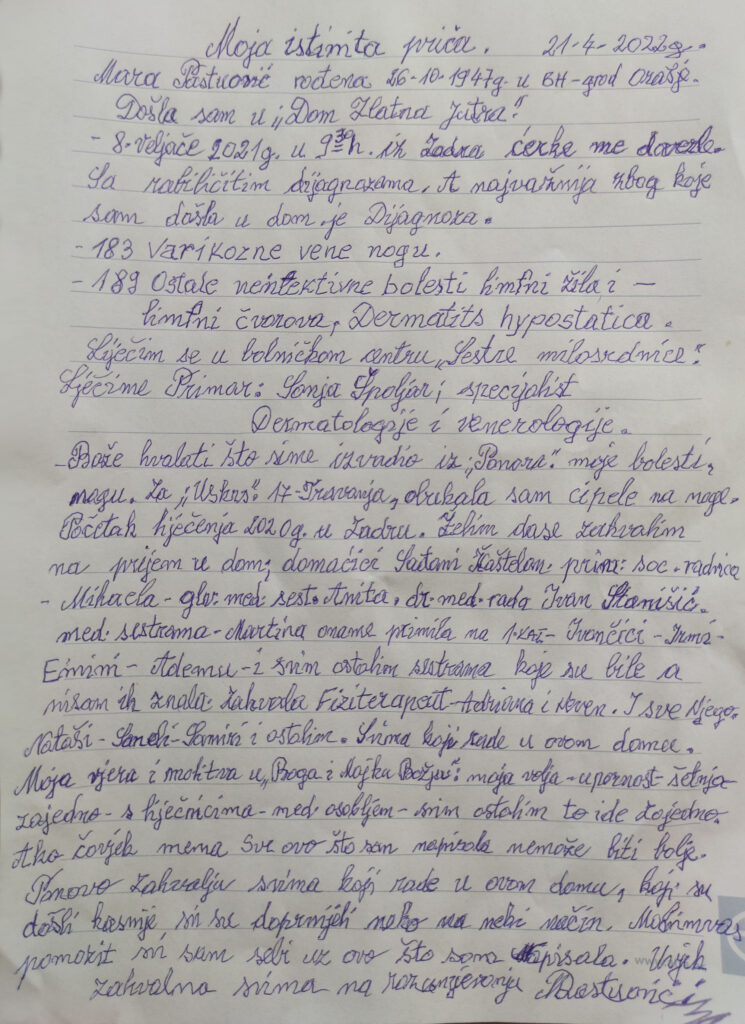 Moja istinita priča. 21-4-2022g.
Mara Pastuović rođena 26-10-1947g. u BH-grod Orašje.
Došla sam u „Dom Zlatna Jutra“.
- 8. veljače 2021g. u 9 30 h. iz Zadra ćerke me dovezle.
Sa različitim dijagnozama. A najvažnija zbog koje
sam došla u dom je Dijagnoza.
- 183 Varikozne vene nogu.
- 189 Ostale neinfektivne bolesti limfni žila i -
limfni čvorova, Dermatits hypostatica.
Liječim se u bolničkom centru „Sestre milosrdnice“.
Lječime Primar: Sanja Špoljar, specijalist
Dermatologije i venerologije.
- Bože hvalati što sime izvadio iz „Ponora“ moje bolesti,
nogu. Za „Uskrs“ 17-Travanja, obukala sam cipele na noge.
Početak liječenja 2020g. u Zadru. Želim dase zahvalim
na prijem u dom, domaćici Kaštelan. soc. radnica
- Mihaela - glv. med. sest. Anita, dr. med. rada Ivan Stanišić.
med. sestrama - Martina oname primila na 1. kat - Ivančici - Irmi -
Emini - Ademu - i svim ostalim sestrama koje su bile a
nisam ih znala. Zahvala Fiziterapeut - Adriana i Neven. I sve Njego.
Nataši - Sandi - Samiri i ostalim. Svima koji rade u ovom domu.
Moja vjera i molitva u „Boga i Majku Božju“: moja volja - upornost - šetnja
zajedno - s liječnicima - med. osobljem - svim ostalim to ide zajedno.
Ako čovjek nema sve ovo što san napisala nemože biti bolje.
Ponovo zahvalju svima koji rade u ovom domu, koji su
došli kasnije svi su doprinjeli neko na neki način. Molimvas
pomokit svi sam sebi uz ovo što sam napisala. Uvjek
zahvalna svima na razumjevanju MPastuović